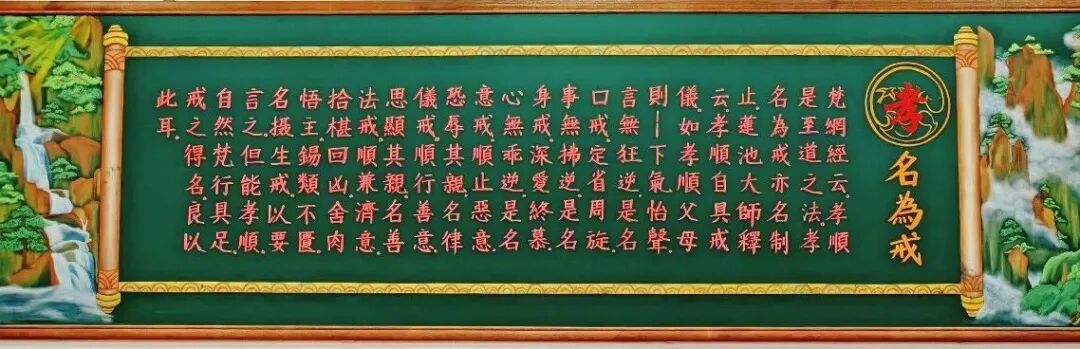 孝
名為戒
梵網經云孝順
是至道之法孝
名為戒亦名制
止.蓮池大師釋
云.孝順自具戒
儀.如孝順父母
則｜下氣怡聲.
言無狂逆.是名
口戒.定省周旋.
事無拂逆.是名
身戒.深愛終慕.
心無乖逆.是名
意戒.順止惡意.
恐辱其親.名律
儀戒.順行善意.
思顯其親.名善
法戒.順兼濟意.
拾椹回凶.舍肉
悟主.錫類不匱.
名摄生戒.以要
言之.但能孝順.
自然梵行具足.
戒之得名.良以
此耳.